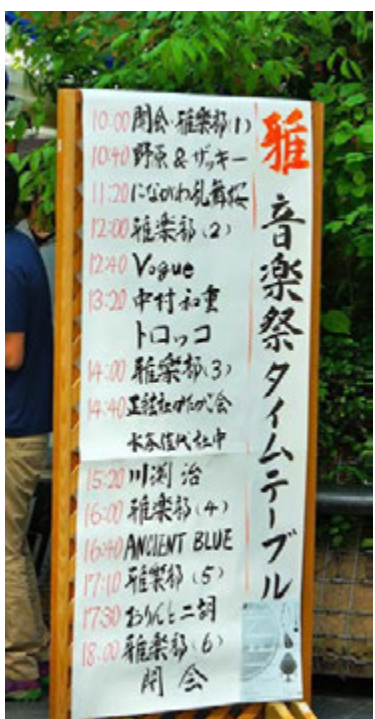 雅 音楽祭タイムテーブル
10:00 開会・雅楽部(1)
10:40 野原&ザッキー
11:20 にながわ乱舞桜
12:00 雅楽部(2)
12:40 Vogue
13:20 中村和重
トロッコ
14:00 雅楽部(3)
14:40 正絃社
社中
15:20 川渕 治
16:00 雅楽部(4)
16:40 ANCIENT BLUE
17:10 雅楽部(5)
17:30 おりんと二胡
18:00 雅楽部(6)
閉会